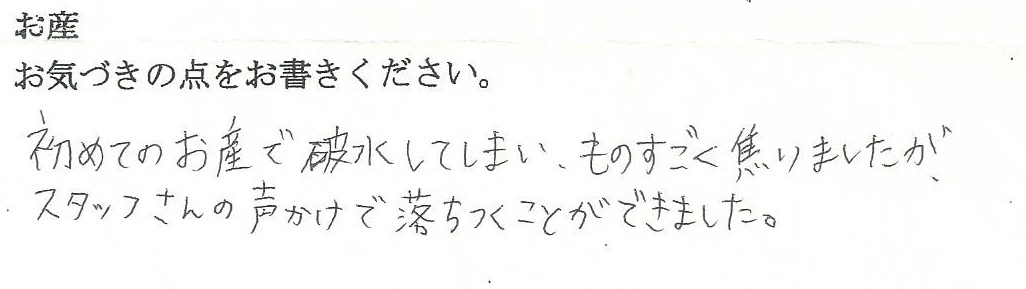 お産
お気づきの点をお書きください。
初めてのお産で破水してしまい、ものすごく焦りましたが、
スタッフさんの声かけで落ちつくことができました。